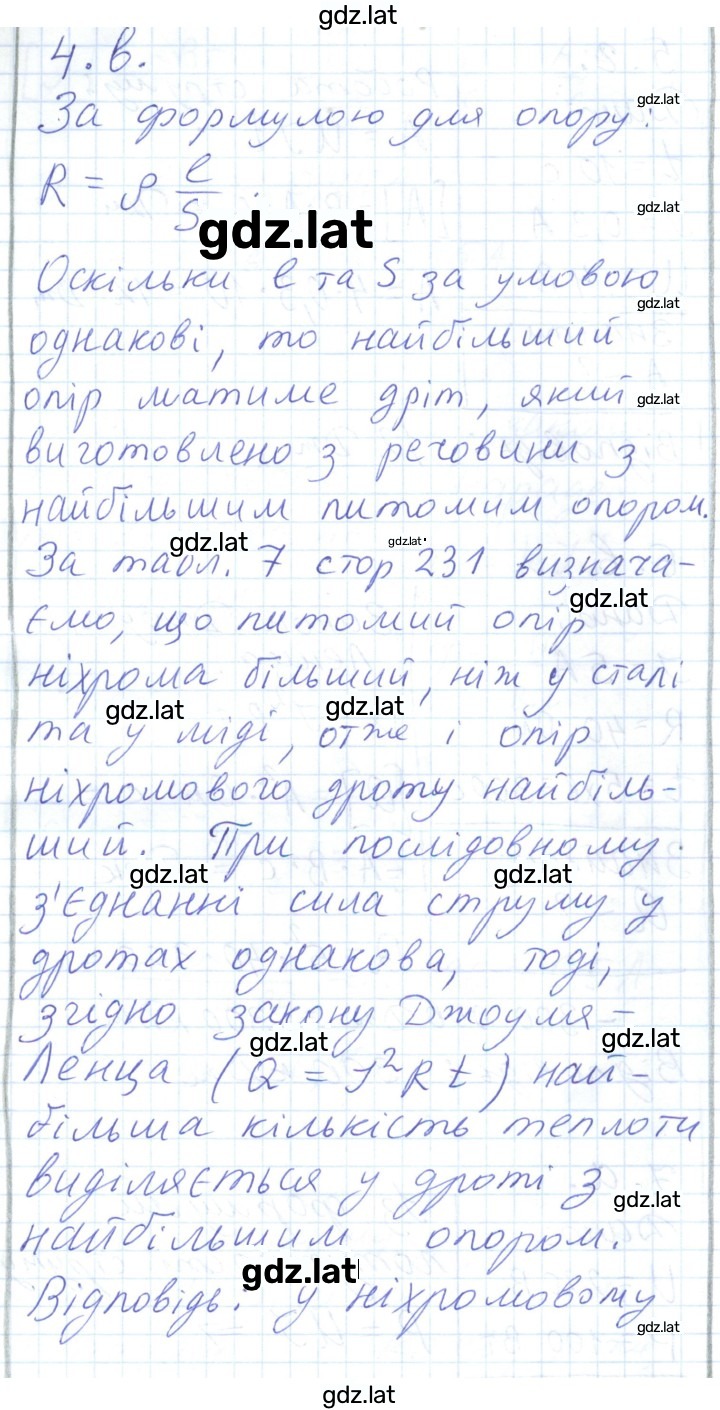 gdz.lat
4.в.
За формулою для опору:
gdz.lat
R = ρ l/S.
gdz.lat
gdz.lat
Оскільки l та S за умовою
gdz.lat
однакові, то найбільший
опір матиме дріт, який
gdz.lat
виготовлено з речовини з
найбільшим питомим опором.
gdz.lat
gdz.lat
За табл. 7 стор 231 визнача-
gdz.lat
ємо, що питомий опір
ніхрома більший, ніж у сталі
gdz.lat
gdz.lat
та у міді, отже і опір
ніхромового дроту найбіль-
ший. При послідовному
gdz.lat
gdz.lat
з'єднанні сила струму у
дротах однакова, тоді,
згідно закону Джоуля-
gdz.lat
gdz.lat
Ленца (Q = J²Rt) най-
більша кількість теплоти
виділяється у дроті з
gdz.lat
найбільшим опором.
gdz.lat
Відповідь: у ніхромовому
gdz.lat
gdz.lat